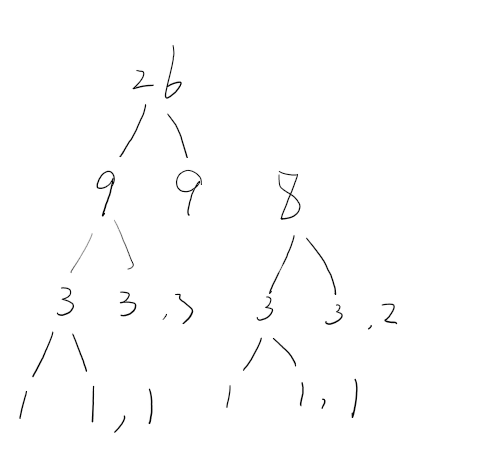 26
9 9 8
3 3 , 3 3 3 , 2
1 1 , 1 1 1 , 1